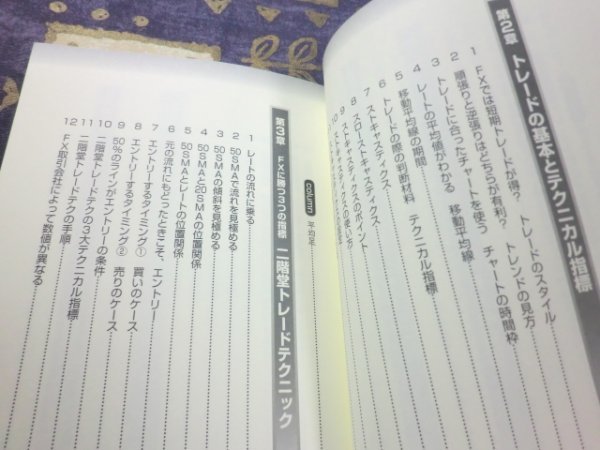 第2章 トレードの基本とテクニカル指標
1 FXでは短期トレードが得? トレードのスタイル
2 順張りと逆張りはどちらが有利? トレンドの見方
3 トレードに合ったチャートを使う チャートの時間枠
4 レートの平均値がわかる 移動平均線
5 移動平均線の期間
6 トレードの際の判断材料 テクニカル指標
7 ストキャスティクス
8 スロー・ストキャスティクス
9 ストキャスティクスのポイント
10 ストキャスティクスの使い方
column 平均足
第3章 FXに勝つ3つの指標 二階堂トレードテクニック
1 レートの流れに乗る
2 50SMAで流れを見極める
3 50SMAの傾斜を見極める
4 50SMAと20SMAの位置関係
5 50SMAとレートの位置関係
6 元の流れにもどったときこそ、エントリー
7 エントリーするタイミング① 買いのケース
8 エントリーするタイミング② 売りのケース
9 50%のラインがエントリーの条件
10 二階堂トレードテクの3大テクニカル指標
11 二階堂トレードテクの手順
12 FX取引会社によって数値が異なる